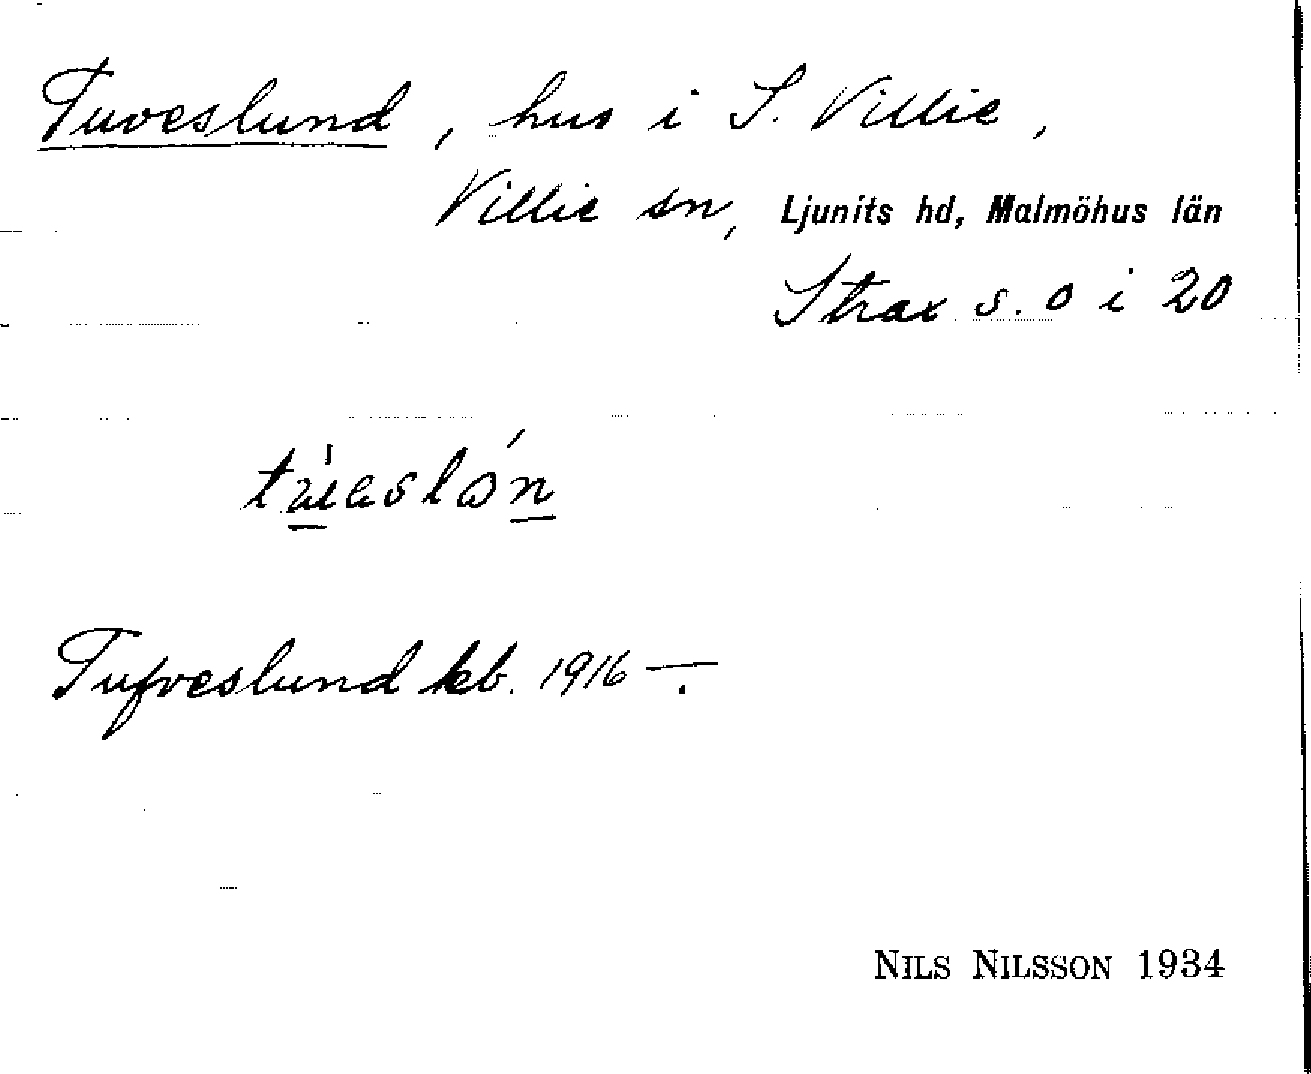 Tuveslund, hus i S. Villie,
Villie sn, Ljunits hd, Malmöhus län
Strax s. o i 20
Tufveslund kb. 1916 —.
NILS NILSSON 1934